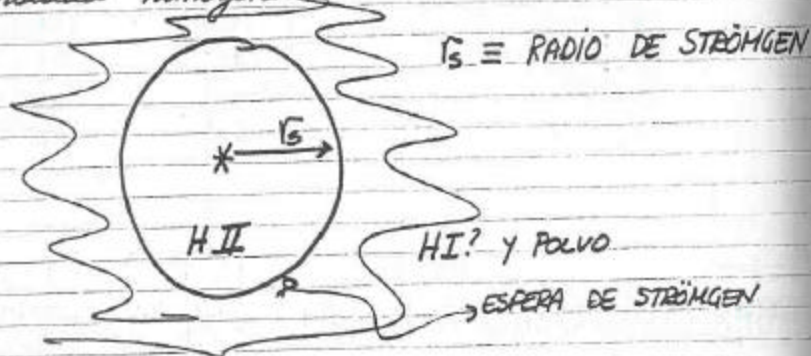 r_s ≡ RADIO DE STRÖMGEN
r_s
HII
HI? Y POLVO
ESFERA DE STRÖMGEN